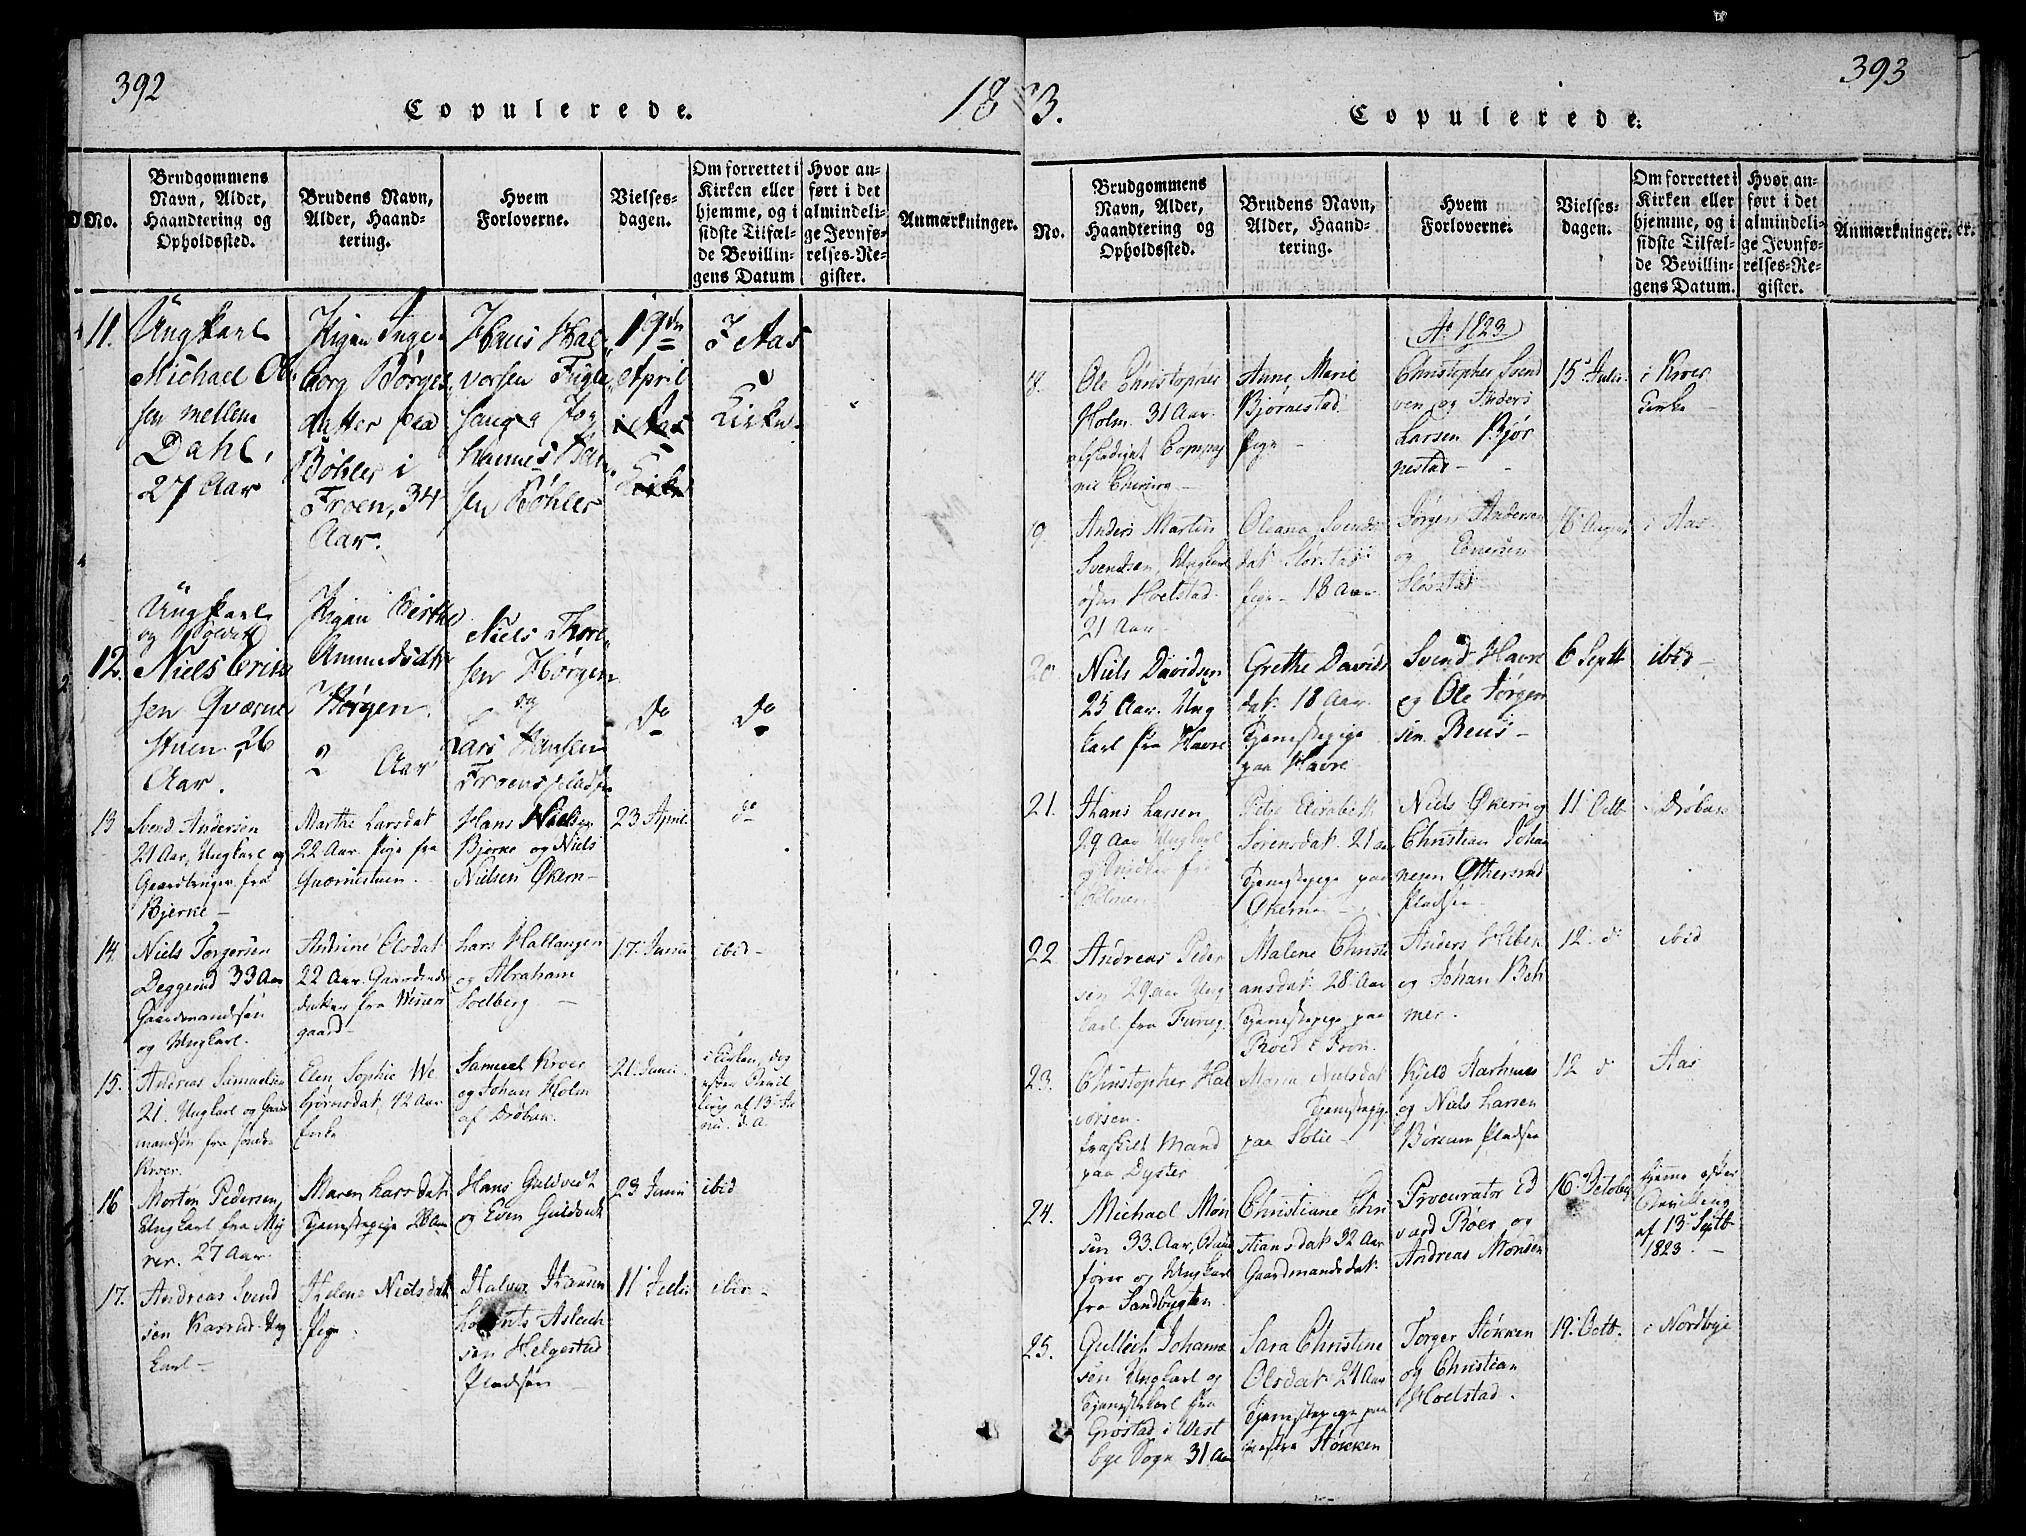 392
Copulerede.
18
No.
Brudgommens
Navn, Alder,
Haandtering og
Opholdssted.
Brudens Navn,
Alder, Haand-
tering.
Hvem
Forloverne.
Vielses-
dagen.
Om forrettet i
Kirken eller
hjemme, og i
sidste Tilfæl-
de Bevillin-
gens Datum
Hvor an-
ført i det
almindeli-
ge Jevnfø-
relses-Re-
gister.
Anmærkninger.
11.
Ungkarl
Michael Ol-
sen mellem
Dahl,
27 Aar
Pigen Inge-
borg Børges
datter fra
Bøhler i
Froen, 34
Aar.
Hans Hal-
vorsen Fugle
sang
hannes
sen Bøhler
19de
April
i Aas
Kirke
I Aas
Kirke
12.
Ungkarl
og
Niels Erik
sen Qværne
stuen 26
Aar.
Pigen Berthe
Amundsdtr
Horgen.
2 Aar
Niels Thor
sen Horgen
og
Lars Hansen
Froens pladsen
do
do
13
Svend Andersen
21 Aar, Ungkarl og
Gaardbruger fra
Bjerke -
Marthe Larsdat
22 Aar Pige fra
Qværnestuen.
Hans Niels
Bjerke og Niels
Nielsen Økern -
23 April
do
14.
Niels Torgersen
Deggerud 33 Aar
Gaardmandsøn
og Ungkarl.
Andrine Olsdat
22 Aar. Gaardmands
datter fra Weier
gaard -
Lars Hallangen
og Abraham
Solberg -
17. Junii
ibid -
15.
Andreas Samuelsen
21. Ungkarl og Gaard
mandsøn fra søndre
Kroer.
Elen Sophie We
bjørnsdat, 42 Aar
Enke
Samuel Kroer
og Johan Holm
af Drøbak.
21. Junii.
i Kirken, dog
efter Bevil
ling af 13 Ja
nu. d. A.
16
Morten Pedersen,
Ungkarl fra My
rer. 27 Aar.
Maren Larsdat
Tjenestepige 28 Aar
Hans Guldvedt
og Even Guldvedt
23 Junii
ibid
17.
Andreas Svend
sen Karrud Ung
karl -
Helene Nielsdat
Pige.
Halvor Hansen
Lorents Aslach
sen Helgestad
Pladsen
11 Julii
ibid -
3.
393
Copulerede.
No.
Brudgommens
Navn, Alder,
Haandtering og
Opholdssted.
Brudens Navn,
Alder, Haand-
tering.
Hvem
Forloverne.
Vielses-
dagen.
Om forrettet i
Kirken eller
hjemme, og i
sidste Tilfæl-
de Bevillin-
gens Datum.
Hvor an-
ført i det
almindeli-
ge Jevnfø-
relses-Re-
gister.
Anmærkninger.
Ao 1823
8.
Ole Christopher
Holm. 31 Aar.
afskediget Compag
nie Chirurg -
Anne Marie
Bjørnestad
Pige -
Christopher Svend
sen og Anders
Larsen Bjør
nestad -
15 Julii.
i Kroer
Kirke -
9.
Anders Martin
Svendsen, Ungkarl
ofra Holstad.
21 Aar -
Oleana Svends
dat Slorstad
Pige - 18 Aar
Jørgen Andersen
og
Slorstad
8 August
i Aas
20
Niels Davidsen
25 Aar. Ung
karl fra Havre
Grethe Davids
dat. 18 Aar
Tjenestepige
paa Havre
Svend Havre
og Ole Jørgen
sen Reus -
6 Septb
ibid -
21.
Hans Larsen
29 Aar Ungkarl
og
Elisabeth
Sørensdat. 21 aar
Tjenestepige paa
Økerne -
Niels Økern og
Christian Johan
nesen Økernrud
Pladsen -
11 Octb
i Drøbak
22
Andreas Peder
sen 29 aar Ung
karl fra
Malene Christi
ansdat. 28 Aar
Tjenestepige paa
Roed i Fron.
Anders Hebek
og Johan Boh
mer.
12. do
ibid
23.
Christopher Hal
vorsen.
fraskilt Mand
paa Dyster
Maria Nielsdat
Tjenestepige
paa Solie -
Kjeld Aarhuus
og Niels Larsen
Børsum Pladsen
12 do
Aas
24.
Michael Mon
sen 33. Aar,
fører og Ungkarl
fra Sandbugten.
Christiane Chri
stiansdat 32 Aar
Gaardmandsdat.
Procurator Ed
vard Røer og
Andreas Monsen
16. October
hjemme efter
Bevilling
af 13 Septb
1823. -
25.
Gullich Johanne
sen Ungkarl og
Tjenestekarl fra
Grøstad i West
bye Sogn 31 Aar
Sara Christine
Olsdat. 24 Aar
Tjenestepige paa
nestre Stokken
Torger Stokken
og Christian
Hoelstad.
19. Octb.
i Nordbye